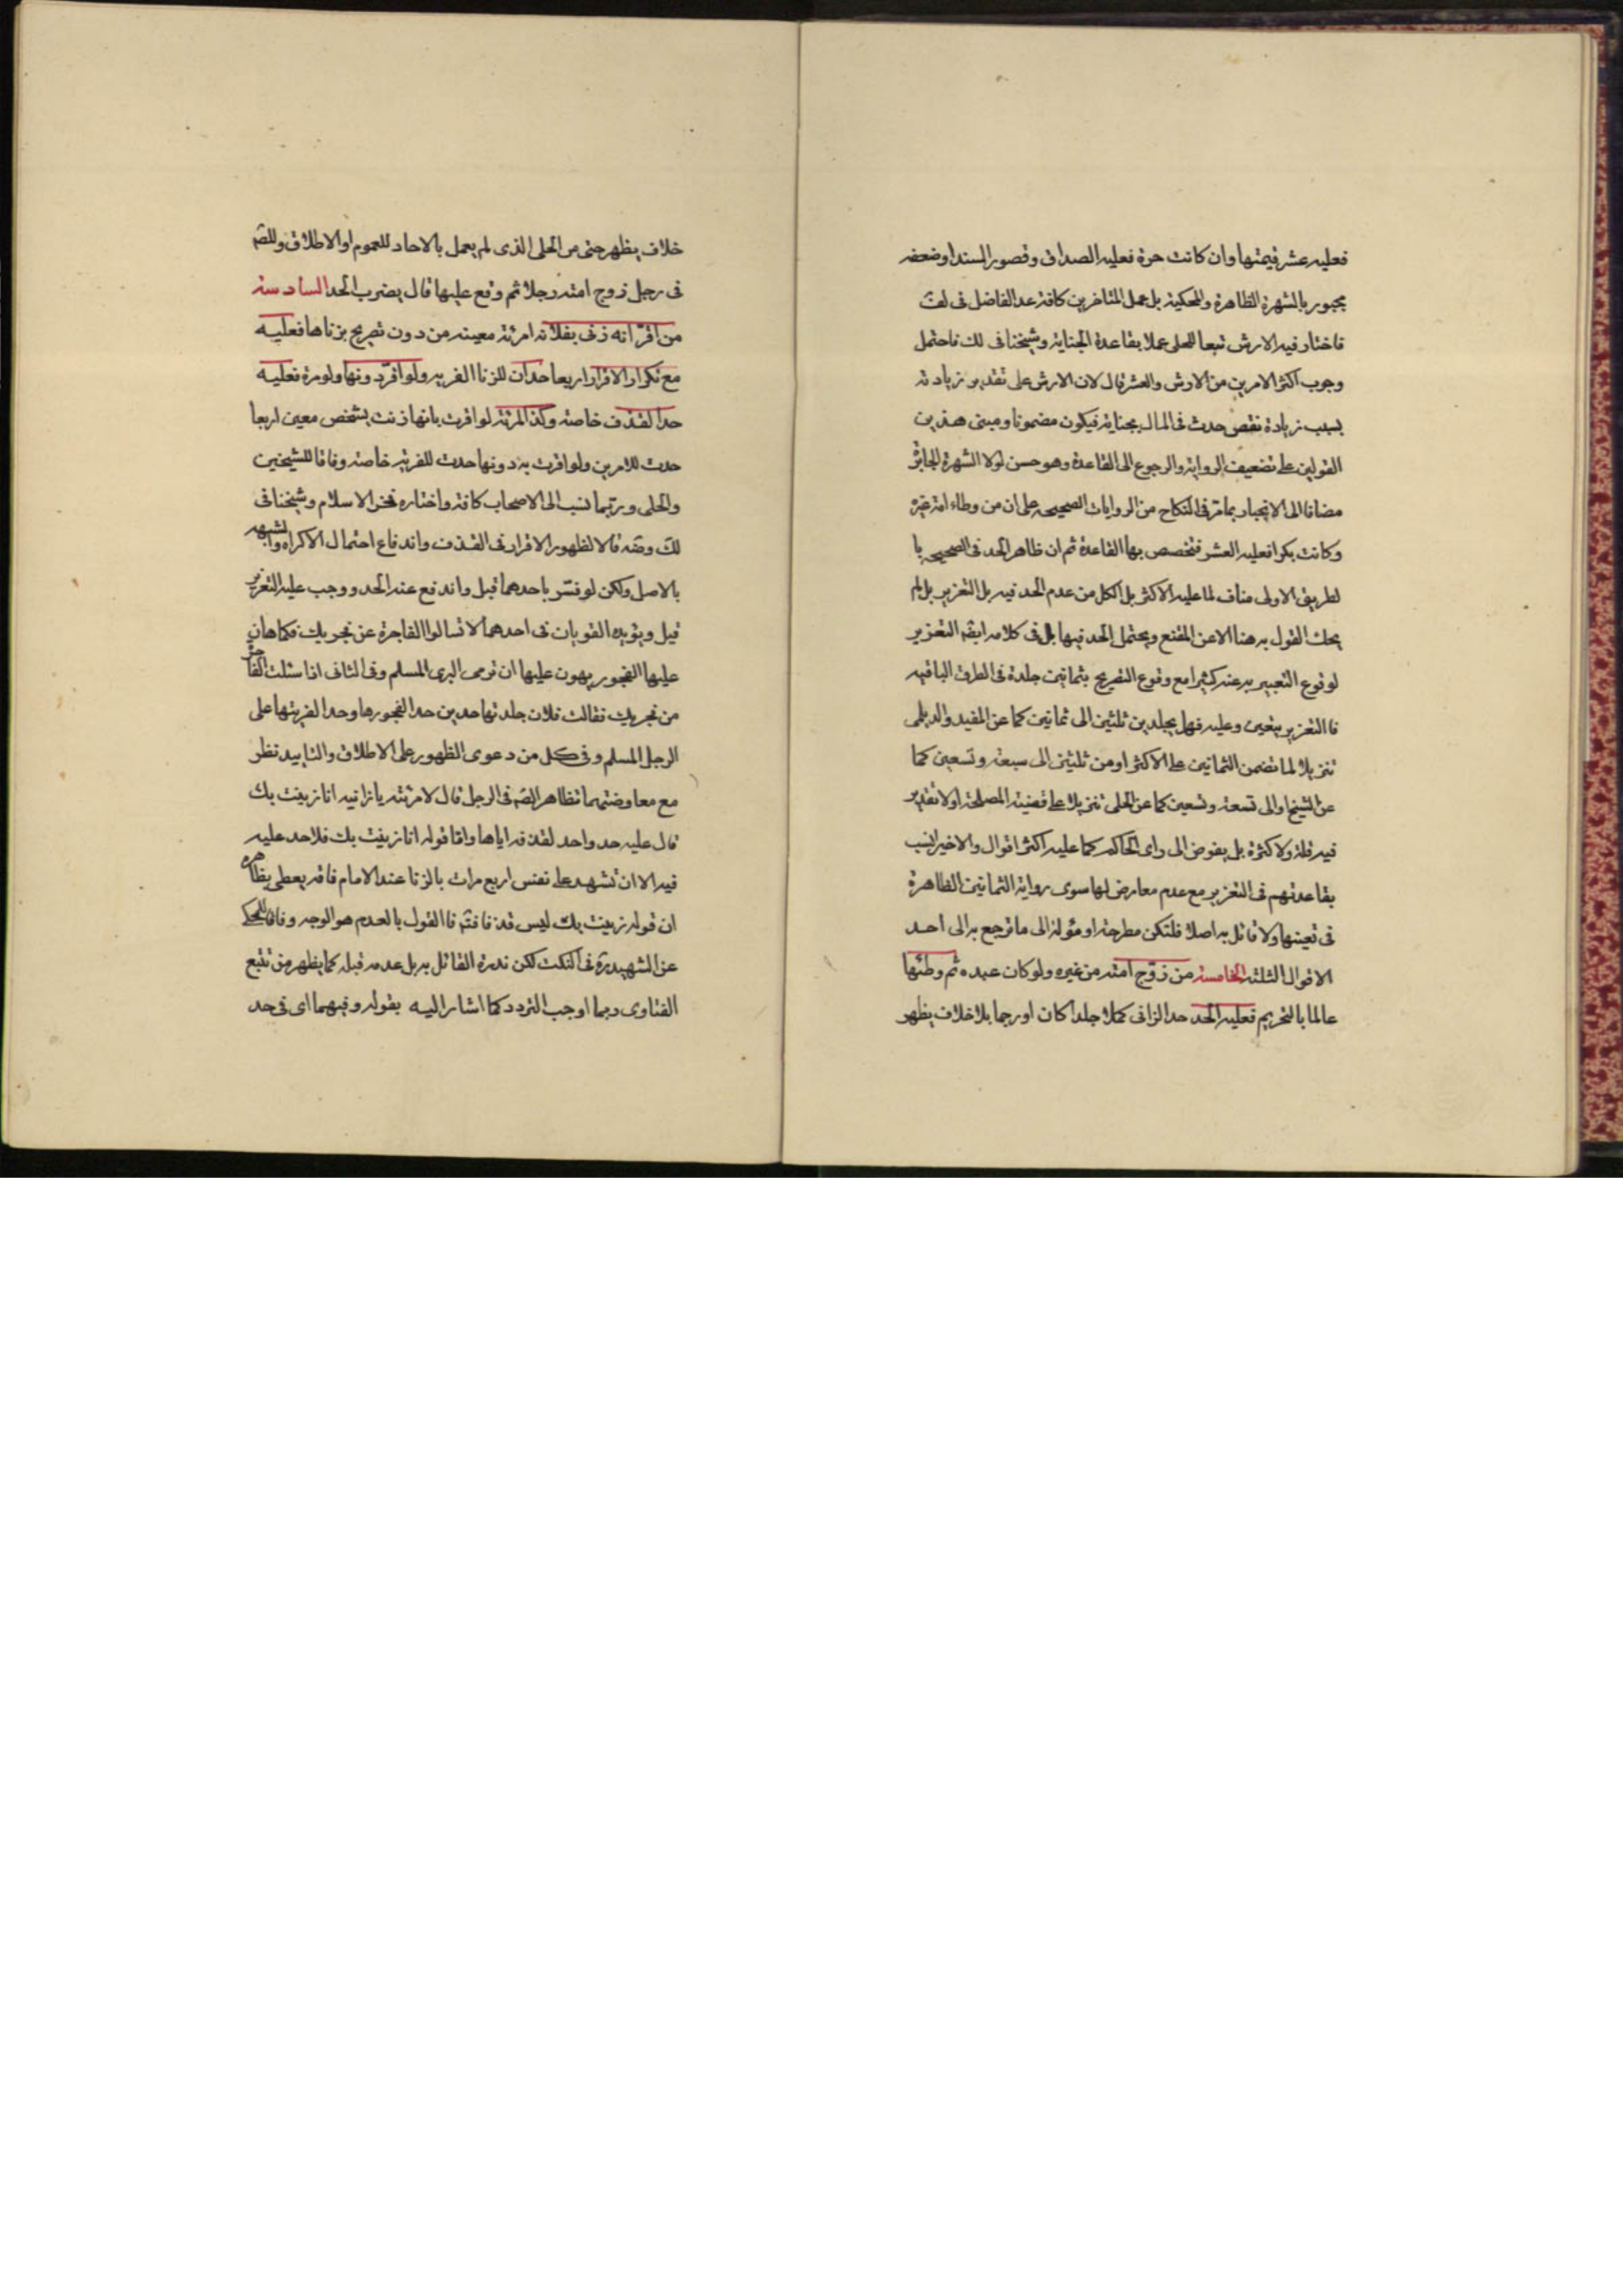 فعليه عشر قيمتها وان كانت حرة فعليه الصداق وقصور السند او ضعفه
مجبور بالشهرة الظاهرة والمحكية بل عمل المتاخرين كافة عد الفاضل فى لف
فاختار فيه الارش تبعا للحلى عملا بقاعدة الجناية وشيخنا فى لك فاحتمل
وجوب اكثر الامرين من الارش والعشر قال لان الارش على تقدير زيادته
بسبب زيادة نقص حدث فى المال بجناية فيكون مضمونا ومبنى هذين
القولين على تضعيف الرواية والرجوع الى القاعدة وهو حسن لولا الشهرة الجابرة
مضافا الى الانجبار بما مر فى النكاح من الروايات الصحيحه على ان من وطاء امة غيره
وكانت بكرا فعليه العشر فتخصص بها القاعدة ثم ان ظاهر الحد فى الصحيحه با
لطريق الاولى مناف لما عليه الاكثر بل الكل من عدم الحد فيه بل التعزير بل لم
يحك القول به هنا الا عن المقنع ويحتمل الحد فيها بل فى كلامه ايضا التعزير
لوقوع التعبير به عنه كثيرا مع وقوع التصريح بثمانين جلدة فى الطرق الباقيه
فاالتعزير يتعين وعليه فهل يجلد من ثلثين الى ثمانين كما عن المفيد والديلمى
تنزيلا لما تضمن الثمانين على الاكثر او من ثلثين الى سبعة وتسعين كما
عن الشيخ او الى تسعة وتسعين كما عن الحلى تنزيلا على قضية المصلحة او لا تقدير
فيه قلة ولا كثرة بل يفوض الى راى الحاكم كما عليه اكثر اقوال والاخير انسب
بقاعدتهم فى التعزير مع عدم معارض لها سوى رواية الثمانين الظاهرة
فى تعينها ولا قائل به اصلا فلتكن مطرحة او مؤولة الى ما ترجع به الى احد
الاقوال الثلثه الخامسة من زوّج امته من غيره ولو كان عبده ثم وطئها
عالما بالتحريم فعليه الحد حد الزانى كملا جلدا كان او رجما بلا خلاف يظهر
خلاف يظهر حتى من الحلى الذى لم يعمل بالاحاد للعموم او الاطلاق وللصم
فى رجل زوج امته رجلا ثم وقع عليها قال يضرب الحد السادسة
من اقرّ انه زنى بفلانه امرئة معينه من دون تصريح بزناها فعليه
مع تكرار الاقرار اربعا حدان للزنا الفريه ولو اقرّ دونها ولو مرة فعليه
حد القذف خاصة وكذ المرئة لو اقرت بانها زنت بشخص معين اربعا
حدت للامرين ولو اقرت به دونها حدت للفرية خاصة وفاقا للشيخين
والحلى وربما نسب الى الاصحاب كافة واختاره فخر الاسلام وشيخنا فى
لك وضه قالا لظهور الاقرار فى القذف واندفاع احتمال الاكراه والشبهه
بالاصل ولكن لو فسّر باحدهما قبل واندفع عنه الحد ووجب عليه التعزير
قيل ويؤيده القويان فى احدهما لا تسالوا الفاجرة عن فجر بك فكما هان
عليها الفجور يهون عليها ان ترمى البرى المسلم وفى الثانى اذا سئلت الفاجرة
من فجر بك فقالت فلان جلدتها حدين حدا لفجورها وحدا لفريتها على
الرجل المسلم وفى كل من دعوى الظهور على الاطلاق والتاييد نظر
مع معاوضتهما تظاهر الصم فى الرجل قال لامرئته يا زانيه انا زنيت بك
قال عليه حد واحد لقذفه اياها واما قوله انا زنيت بك فلا حد عليه
فيه الا ان تشهد على نفس اربع مرات بالزنا عند الامام فانه يعطى بظاهره
ان قوله زنيت بك ليس قذفا فتم فا القول بالعدم هو الوجه وفاقا للمحكى
عن الشهيد ره فى النكت لكن ندرة القائل به بل عدمه قبله كما يظهر من تتبع
الفتاوى ربما اوجب التردد كما اشار اليه بقوله وفيهما اى فى حد